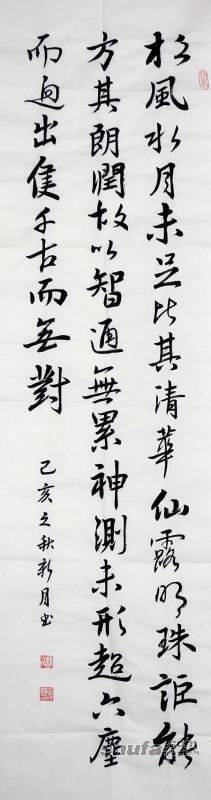 松風水月未足比其清華仙露明珠詎能
方其朗潤故以智通無累神測未形超六塵
而迥出隻千古而無對
己亥之秋新月書